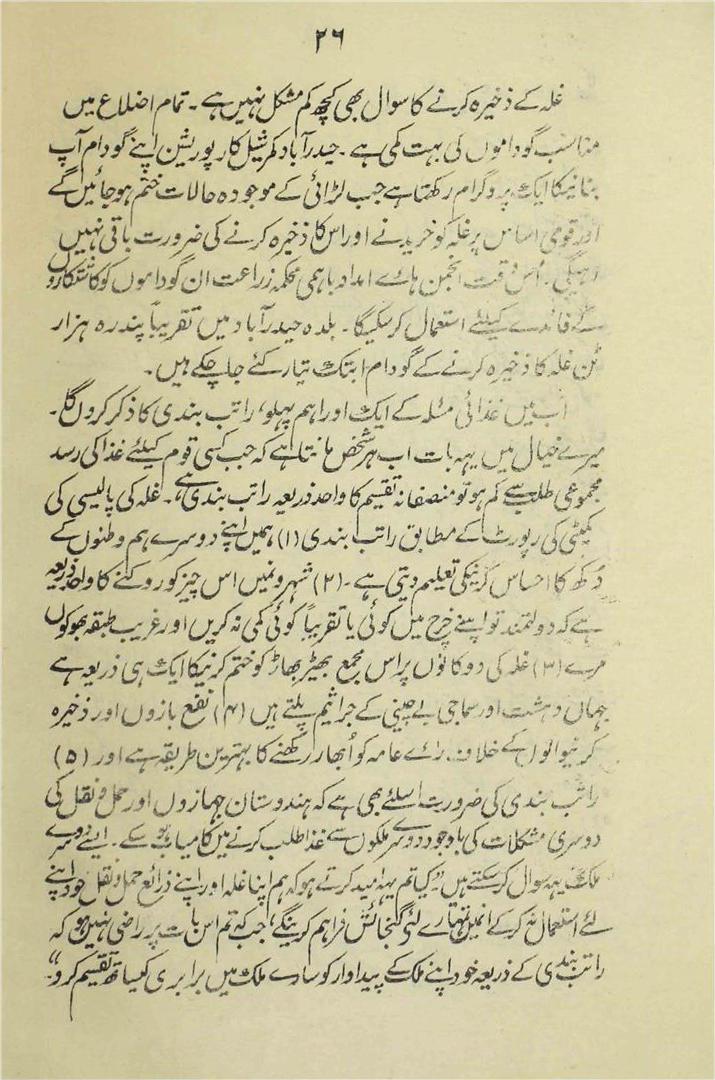 ۲۶
غلہ کے ذخیرہ کرنے کا سوال بھی کچھ کم مشکل نہیں ہے ۔ تمام اضلاع میں
مناسب گوداموں کی بہت کمی ہے ۔ حیدرآباد کمرشیل کارپوریشن اپنے گودام آپ
بنانیکا ایک پروگرام رکھتا ہے جب لڑائی کے موجودہ حالات ختم ہوجائیں گے
اور قومی اساس پر غلہ کو خریدنے اور اس کا ذخیرہ کرنے کی ضرورت باقی نہیں
رہیگی ۔ اُس وقت انجمن ہائے امداد باہمی محکمہ زراعت ان گوداموں کو کاشتکاروں
کے فائدے کیلئے استعمال کرسکیگا ۔ بلدہ حیدرآباد میں تقریباً پندرہ ہزار
ٹن غلہ کا ذخیرہ کرنے کے گودام ابتک تیار کئے جاچکے ہیں ۔
اب میں غذائی مسئلہ کے ایک اور اہم پہلو، راتب بندی کا ذکر کروں گا ۔
میرے خیال میں یہہ بات اب ہر شخص مانتا ہے کہ جب کسی قوم کیلئے غذا کی رسد
مجموعی طلب سے کم ہو تو منصفانہ تقسیم کا واحد ذریعہ راتب بندی ہے ۔ غلہ کی پالیسی کی
کمیٹی کی رپورٹ کے مطابق راتب بندی (۱) ہمیں اپنے دوسرے ہم وطنوں کے
دُکھ کا احساس کرنیکی تعلیم دیتی ہے ۔ (۲) شہرونمیں اس چیز کو روکنے کا واحد ذریعہ
ہے کہ دولتمند تو اپنے خرچ میں کوئی یا تقریباً کوئی کمی نہ کریں اور غریب طبقہ بھوکوں
مرے (۳) غلہ کی دوکانوں پر اس مجمع بھیڑ بھاڑ کو ختم کرنیکا ایک ہی ذریعہ ہے
جہاں دہشت اور سماجی بے چینی کے جراثیم پلتے ہیں (۴) نفع بازوں اور ذخیرہ
کرنیوالوں کے خلاف رائے عامہ کو اُبھار رکھنے کا بہترین طریقہ ہے اور (۵)
راتب بندی کی ضرورت اسلئے بھی ہے کہ ہندوستان جہازوں اور حمل و نقل کی
دوسری مشکلات کی باوجود دوسرے ملکوں سے غذا طلب کرنے میں کامیاب ہو سکے ۔ ایسے دوسرے
ملک یہہ سوال کرسکتے ہیں "کیا تم یہہ امید کرتے ہو کہ ہم اپنا غلہ اور اپنے ذرائع حمل و نقل خود اپنے
لئے استعمال نہ کرکے انمیں تمہارے لئے گنجائش فراہم کرینگے، جب کہ تم اس بات پر راضی نہیں ہو کہ
راتب بندی کے ذریعہ خود اپنے ملک کے پیداوار کو سارے ملک میں برابری کیساتھ تقسیم کرو"۔